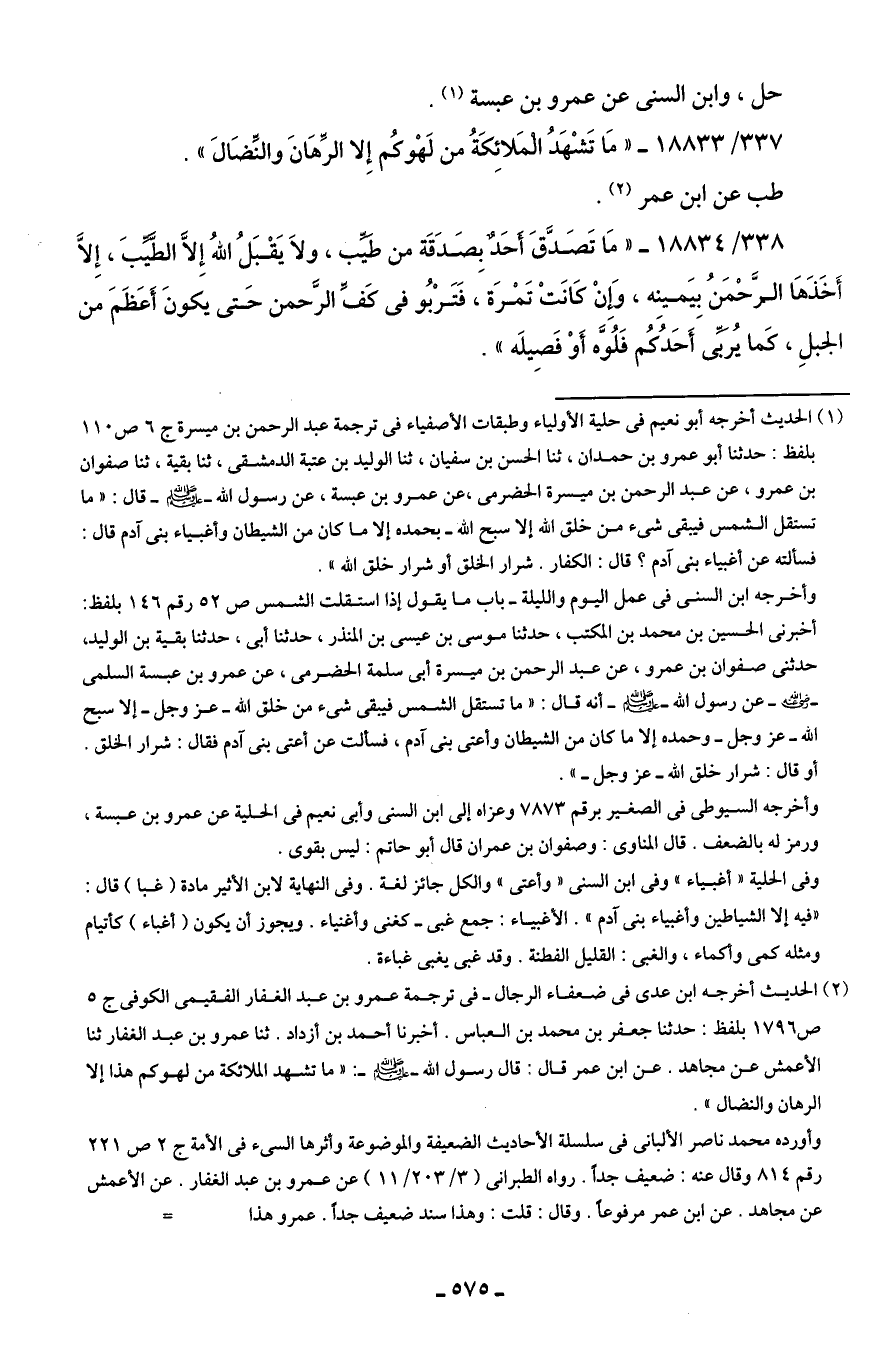 حل ، وابن السنى عن عمرو بن عبسة (١) .
٣٣٧/ ١٨٨٣٣ ـ « مَا تَشْهَدُ الْمَلَائِكَةُ من لَهْوِكُم إِلا الرِّهَانَ والنِّضَالَ » .
طب عن ابن عمر (٢) .
٣٣٨/ ١٨٨٣٤ ـ « مَا تَصَدَّقَ أَحَدٌ بِصَدَقَة من طَيِّب ، ولاَ يَقْبَلُ اللهُ إِلاَّ الطَّيِّبَ ، إِلاَّ
أَخَذَهَا الرَّحْمَنُ بِيَمِينِه ، وَإِنْ كَانَتْ تَمْرَة ، فَتَرْبُو فى كَفِّ الرَّحمن حَتى يكونَ أَعَظَمَ من
الجبلِ ، كَما يُرَبِّى أَحَدُكُم فَلُوَّه أَوْ فَصِيلَه » .
(١) الحديث أخرجه أبو نعيم فى حلية الأولياء وطبقات الأصفياء فى ترجمة عبد الرحمن بن ميسرة ج ٦ ص١١٠
بلفظ : حدثنا أبو عمرو بن حمدان ، ثنا الحسن بن سفيان ، ثنا الوليد بن عتبة الدمشقى ، ثنا بقية ، ثنا صفوان
بن عمرو ، عن عبد الرحمن بن ميسرة الحضرمى ،عن عمرو بن عبسة ، عن رسول الله ـ ﷺ ـ قال : « ما
تستقل الشمس فيبقى شىء من خلق الله إلا سبح الله ـ بحمده إلا ما كان من الشيطان وأغبياء بنى آدم قال :
فسألته عن أغبياء بنى آدم ؟ قال : الكفار . شرار الخلق أو شرار خلق الله » .
وأخرجه ابن السنى فى عمل اليوم والليلة ـ باب ما يقول إذا استقلت الشمس ص ٥٢ رقم ١٤٦ بلفظ:
أخبرنى الحسين بن محمد بن المكتب ، حدثنا موسى بن عيسى بن المنذر ، حدثنا أبى ، حدثنا بقية بن الوليد،
حدثنى صفوان بن عمرو ، عن عبد الرحمن بن ميسرة أبى سلمة الحضرمى ، عن عمرو بن عبسة السلمى
ـ رضي الله عنه ـ عن رسول الله ـ ﷺ ـ أنه قال : « ما تستقل الشمس فيبقى شىء من خلق الله ـ عز وجل ـ إلا سبح
الله ـ عز وجل ـ وحمده إلا ما كان من الشيطان وأعتى بنى آدم ، فسألت عن أعتى بنى آدم فقال : شرار الخلق .
أو قال : شرار خلق الله ـ عز وجل ـ » .
وأخرجه السيوطى فى الصغير برقم ٧٨٧٣ وعزاه إلى ابن السنى وأبى نعيم فى الحلية عن عمرو بن عبسة ،
ورمز له بالضعف . قال المناوى : وصفوان بن عمران قال أبو حاتم : ليس بقوى .
وفى الحلية « أغبياء » وفى ابن السنى « وأعتى » والكل جائز لغة . وفى النهاية لابن الأثير مادة ( غبا ) قال :
«فيه إلا الشياطين وأغبياء بنى آدم » . الأغبياء : جمع غبى ـ كغنى وأغنياء . ويجوز أن يكون ( أغباء ) كأيتام
ومثله كمى وأكماء ، والغبى : القليل الفطنة . وقد غبى يغبى غباءة .
(٢) الحديث أخرجه ابن عدى فى ضعفاء الرجال ـ فى ترجمة عمرو بن عبد الغفار الفقيمى الكوفى ج ٥
ص١٧٩٦ بلفظ : حدثنا جعفر بن محمد بن العباس . أخبرنا أحمد بن أزداد . ثنا عمرو بن عبد الغفار ثنا
الأعمش عن مجاهد . عن ابن عمر قال : قال رسول الله ـ ﷺ ـ: « ما تشهد الملائكة من لهوكم هذا إلا
الرهان والنضال » .
وأورده محمد ناصر الألبانى فى سلسلة الأحاديث الضعيفة والموضوعة وأثرها السىء فى الأمة ج ٢ ص ٢٢١
رقم ٨١٤ وقال عنه : ضعيف جداً . رواه الطبرانى ( ٣/ ٢٠٣/ ١١ ) عن عمرو بن عبد الغفار . عن الأعمش
عن مجاهد . عن ابن عمر مرفوعاً . وقال : قلت : وهذا سند ضعيف جداً . عمرو هذا =
ـ ٥٧٥ ـ